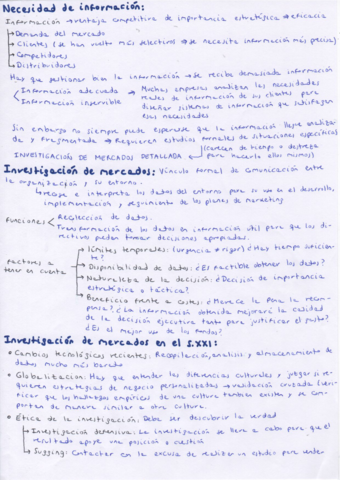 Necesidad de información:
Información → ventaja competitiva de importancia estratégica → eficacia
→ Demanda del mercado
→ Clientes (se han vuelto más selectivos → se necesita información más precisa)
→ Competidores
→ Distribuidores
Hay que gestionar bien la información → se recibe demasiada información
Información adecuada → Muchas empresas analizan las necesidades
Información inservible reales de información de sus clientes para
diseñar sistemas de información que satisfagan
esas necesidades
Sin embargo no siempre puede esperarse que la información llegue analiza-
da y fragmentada → Requieren estudios formales de situaciones específicas
(carecen de tiempo o destreza
INVESTIGACIÓN DE MERCADOS DETALLADA ← para hacerlo ellos mismos)
Investigación de mercados: Vínculo formal de comunicación entre
la organización y su entorno.
→ recoge e interpreta los datos del entorno para su uso en el desarrollo,
implementación y seguimiento de los planes de marketing
Funciones < Recolección de datos.
Transformación de los datos en información útil para que los di-
rectivos puedan tomar decisiones apropiadas.
Factores a tener en cuenta
→ Límites temporales: (urgencia ≠ rigor) ¿Hay tiempo suficien-
te?
→ Disponibilidad de datos: ¿Es factible obtener los datos?
→ Naturaleza de la decisión: ¿Decisión de importancia
estratégica o táctica?
→ Beneficio frente a costes: ¿Merece la pena la recom-
pensa? ¿La información obtenida mejorará la calidad
de la decisión ejecutiva tanto para justificar el gasto?
¿Es el mejor uso de los fondos?
Investigación de mercados en el S.XXI:
• Cambios tecnológicos recientes: Recopilación, análisis y almacenamiento de
datos mucho más barato
• Globalización: Hay que entender las diferencias culturales y juzgar si re-
quieren estrategias de negocio personalizadas → validación cruzada (veri-
ficar que los hallazgos empíricos de una cultura también existen y se com-
portan de manera similar a otra cultura.
• Ética de la investigación: Debe ser descubrir la verdad
→ Investigación defensiva: La investigación se lleva a cabo para que el
resultado apoye una posición o cuestión
→ Sugging: Contactar en la excusa de realizar un estudio para vender